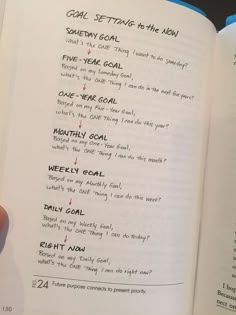 GOAL SETTING to the NOW
SOMEDAY GOAL
What's the ONE Thing I want to do someday?
FIVE-YEAR GOAL
Based on my Someday Goal,
what's the ONE Thing I can do in the next five years?
ONE-YEAR GOAL
Based on my Five-Year Goal,
what's the ONE Thing I can do this year?
MONTHLY GOAL
Based on my One-Year Goal,
what's the ONE Thing I can do this month?
WEEKLY GOAL
Based on my Monthly Goal,
what's the ONE Thing I can do this week?
DAILY GOAL
Based on my Weekly Goal,
what's the ONE Thing I can do today?
RIGHT NOW
Based on my Daily Goal,
what's the ONE Thing I can do right now?
24 Future purpose connects to present priority.
150